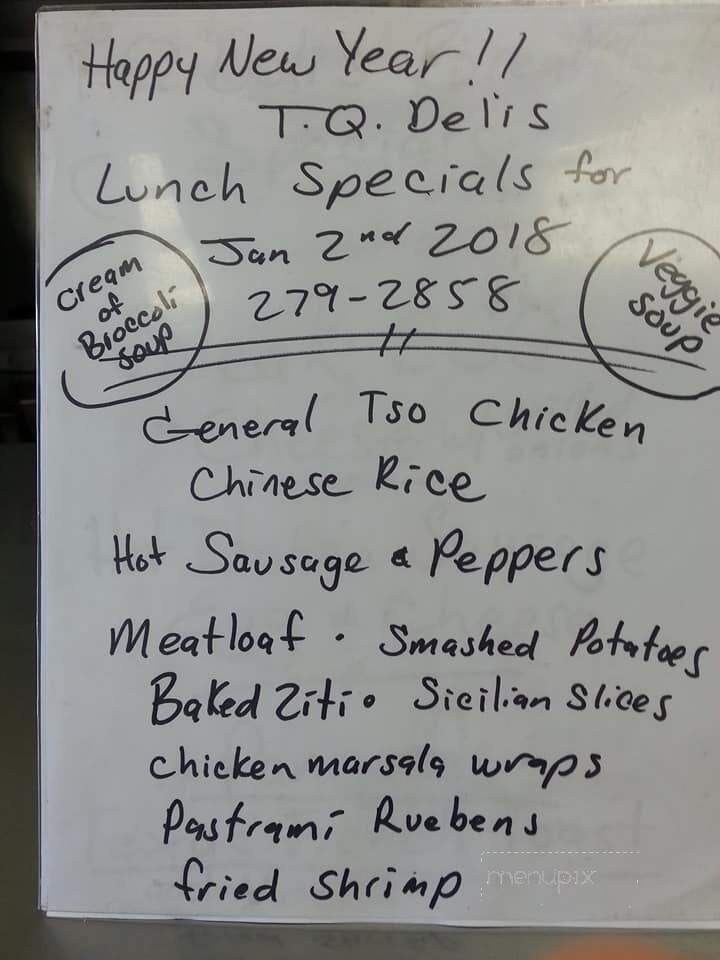 Happy New Year!!
T.Q. Delis
Lunch Specials for
Jan 2nd 2018
279-2858
Cream
of
Broccoli
soup
Veggie
soup
General Tso Chicken
Chinese Rice
Hot Sausage & Peppers
Meatloaf • Smashed Potatoes
Baked Ziti • Sicilian Slices
chicken marsala wraps
Pastrami Ruebens
fried shrimp
menupix